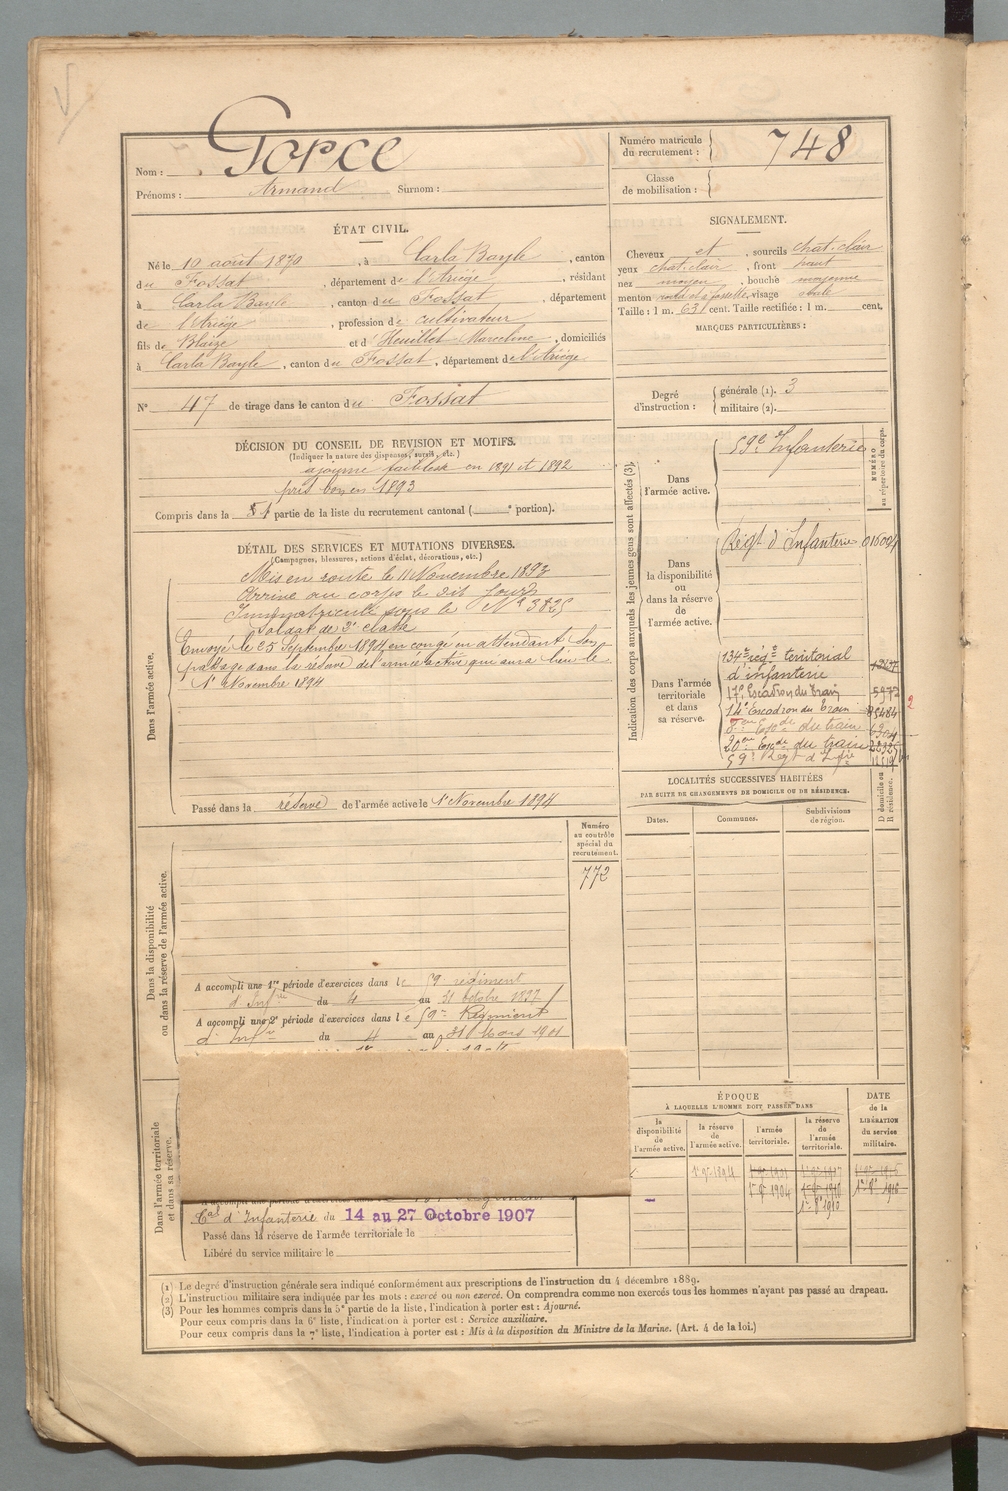 Nom : Gorce
Prénoms : Armand Surnom :
Numéro matricule du recrutement : 748
Classe de mobilisation :
ÉTAT CIVIL.
Né le 10 août 1870, à Carla Bayle, canton
du Fossat, département de l'Ariège, résidant
à Carla Bayle, canton du Fossat, département
de l'Ariège, profession de cultivateur
fils de Blaize et d'Heuillet Marceline, domiciliés
à Carla Bayle, canton du Fossat, département de l'Ariège
N° 47 de tirage dans le canton du Fossat
SIGNALEMENT.
Cheveux et, sourcils chat. clair
yeux chat. clair, front haut
nez moyen, bouche moyenne
menton rond et à fossette, visage ovale
Taille : 1 m. 631 cent. Taille rectifiée : 1 m. cent.
MARQUES PARTICULIÈRES :
Degré d'instruction : générale (1). 3
militaire (2).
DÉCISION DU CONSEIL DE REVISION ET MOTIFS.
(Indiquer la nature des dispenses, sursis, etc.)
ajourné faiblesse en 1891 et 1892
pris bon en 1893
Compris dans la partie de la liste du recrutement cantonal ( e portion).
DÉTAIL DES SERVICES ET MUTATIONS DIVERSES.
(Campagnes, blessures, actions d'éclat, décorations, etc.)
Dans l'armée active.
Mis en route le 11 Novembre 1893
Arrivé au corps le dit jour
Immatriculé sous le N° 3825
Soldat de 2e classe
Envoyé le 25 Septembre 1894 en congé en attendant son
passage dans la réserve de l'armée active qui aura lieu le
1er Novembre 1894
Passé dans la réserve de l'armée active le 1er Novembre 1894
Indication des corps auxquels les jeunes gens sont affectés (3).
NUMÉRO au répertoire du corps.
Dans l'armée active.
59e Infanterie
Dans la disponibilité ou dans la réserve de l'armée active.
Régt d'Infanterie
Dans l'armée territoriale et dans sa réserve.
134e régt territorial
d'infanterie
17e Escadron du Train 5972
14e Escadron du Train
du train
20eme Escon du train
59e Régt d'Infie
LOCALITÉS SUCCESSIVES HABITÉES
PAR SUITE DE CHANGEMENTS DE DOMICILE OU DE RÉSIDENCE.
Dates. Communes. Subdivisions de région. D domicile ou R résidence.
Numéro au contrôle spécial du recrutement.
772
Dans la disponibilité ou dans la réserve de l'armée active.
A accompli une 1re période d'exercices dans le 59 régiment
d'Infrie du 4 au 31 octobre 1897
A accompli une 2e période d'exercices dans le 59e Régiment
d'Infie du 4 au 31 Mars 1901
Dans l'armée territoriale et dans sa réserve.
Cal d'Infanterie du 14 au 27 Octobre 1907
Passé dans la réserve de l'armée territoriale le
Libéré du service militaire le
ÉPOQUE
À LAQUELLE L'HOMME DOIT PASSER DANS
la disponibilité de l'armée active. la réserve de l'armée active. l'armée territoriale. la réserve de l'armée territoriale.
DATE de la LIBÉRATION du service militaire.
(1) Le degré d'instruction générale sera indiqué conformément aux prescriptions de l'instruction du 4 décembre 1889.
(2) L'instruction militaire sera indiquée par les mots : exercé ou non exercé. On comprendra comme non exercés tous les hommes n'ayant pas passé au drapeau.
(3) Pour les hommes compris dans la 5e partie de la liste, l'indication à porter est : Ajourné.
Pour ceux compris dans la 6e liste, l'indication à porter est : Service auxiliaire.
Pour ceux compris dans la 7e liste, l'indication à porter est : Mis à la disposition du Ministre de la Marine. (Art. 4 de la loi.)